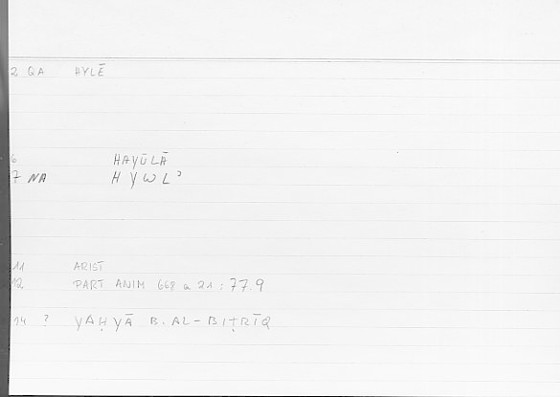 2 QA HYLĒ
6 HAYŪLĀ
7 NA HYWLʾ
11 ARIST
12 PART ANIM 668 a 21 : 77.9
14 ? YAḤYĀ B. AL-BIṬRĪQ